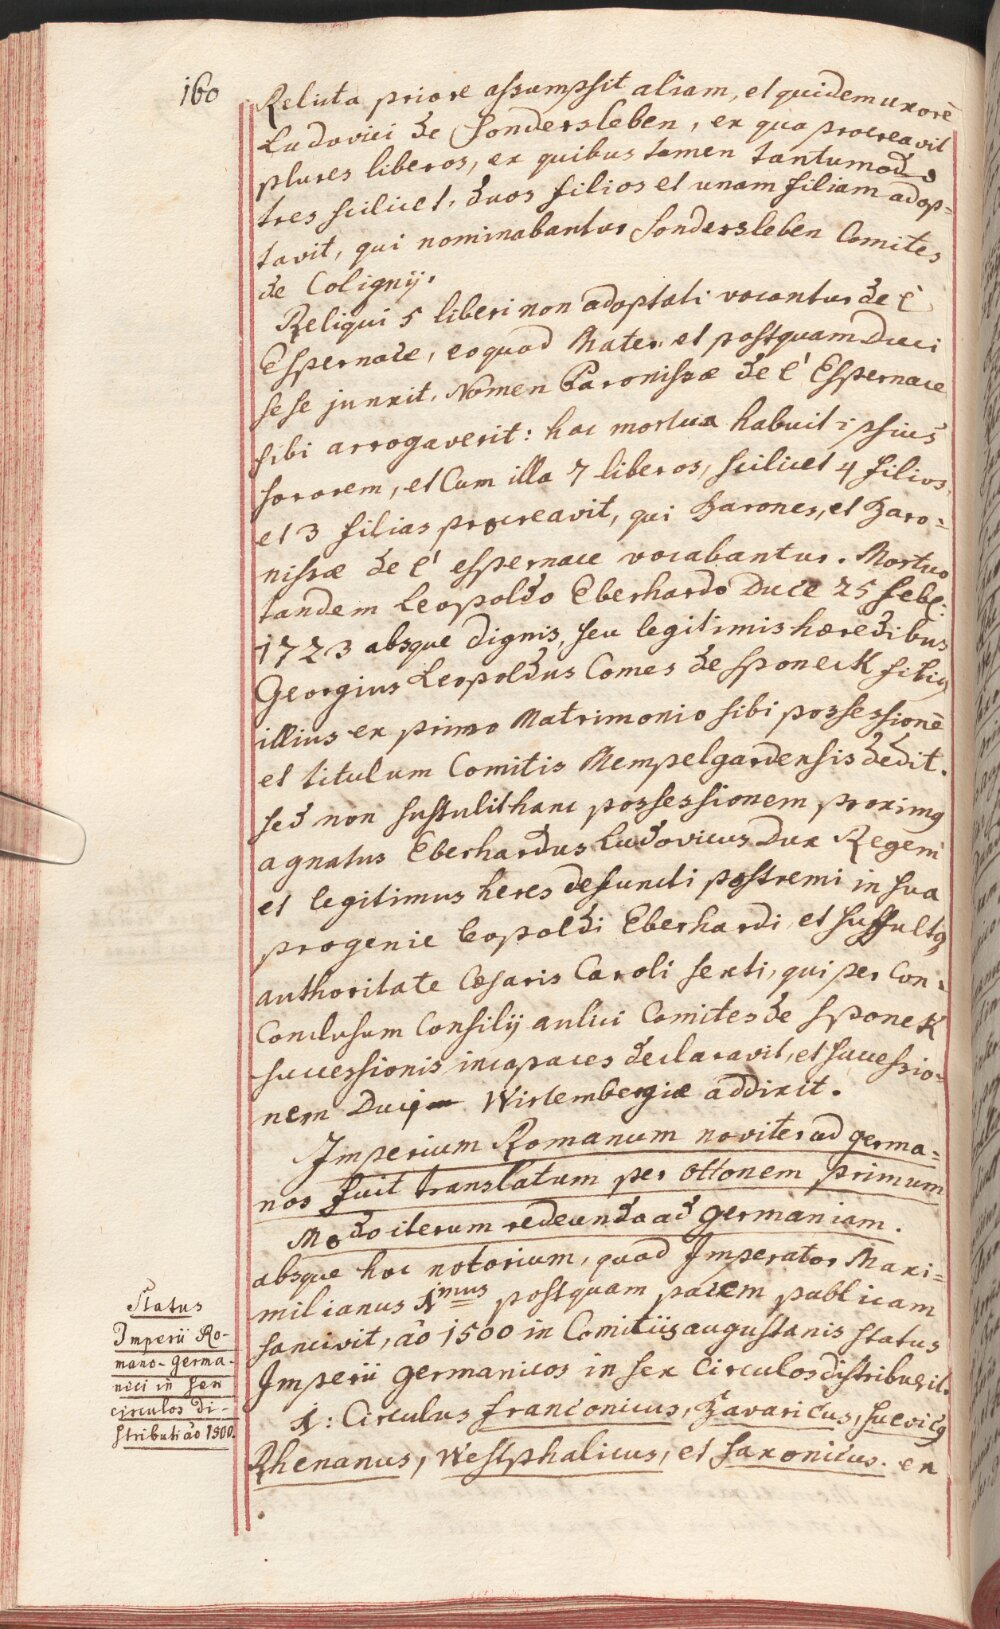 160
Relicta priore assumpsit aliam, et quidem uxorē
Ludovici de Sondersleben, ex qua procreavit
plures liberos, ex quibus tamen tantumodo
tres scilicet, duos filios et unam filiam adop=
tavit, qui nominabantur Sondersleben Comites
de Colignij.
Reliqui 5 liberi non adoptati vocantur de l'
Espernace, eoquod Mater et postquam Duci
sese junxit, Nomen Baronissæ de l' Espernace
sibi arrogaverit: hac mortua habuit ipsius
sororem, et Cum illa 7 liberos, scilicet 4 filios
et 3 filias procreavit, qui Barones, et Baro=
nissæ de l' espernace vocabantur. Mortuo
tandem Leopoldo Eberhardo Duce 25 feb:
1723 absque dignis, seu legitimis hæredibus
Georgius Leopoldus Comes de Sponeck filius
illius ex primo Matrimonio sibi possessionē
et titulum Comitis Mempelgardensis dedit.
sed non sustulit hanc possessionem proximus
agnatus Eberhardus Ludovicus Dux Regens
et legitimus heres defuncti postremi in sua
progenie Leopoldi Eberhardi et suffultus
authoritate Cæsaris Caroli sexti, qui per Con=
Conclusum Consilij aulici Comites de Sponek
successionis incapaces declaravit, et successio=
nem Duci Wirtembergiæ addixit.
Imperium Romanum noviter ad germa=
nos fuit translatum per Ottonem primum
Modo iterum redeundo ad germaniam.
absque hoc notorium, quod Imperator Maxi=
milianus 1mus postquam pacem publicam
sancivit, āo 1500 in Comitiis augustanis status
Imperii germanicos in sex Circulos distribuit.
1: Circulus franconicus, Bavaricus, suevicus
Rhenanus, Westphalicus, et saxonicus. ex
Status
Imperii Ro-
mano-germa-
nici in sex
circulos di-
stributi āo 1500.